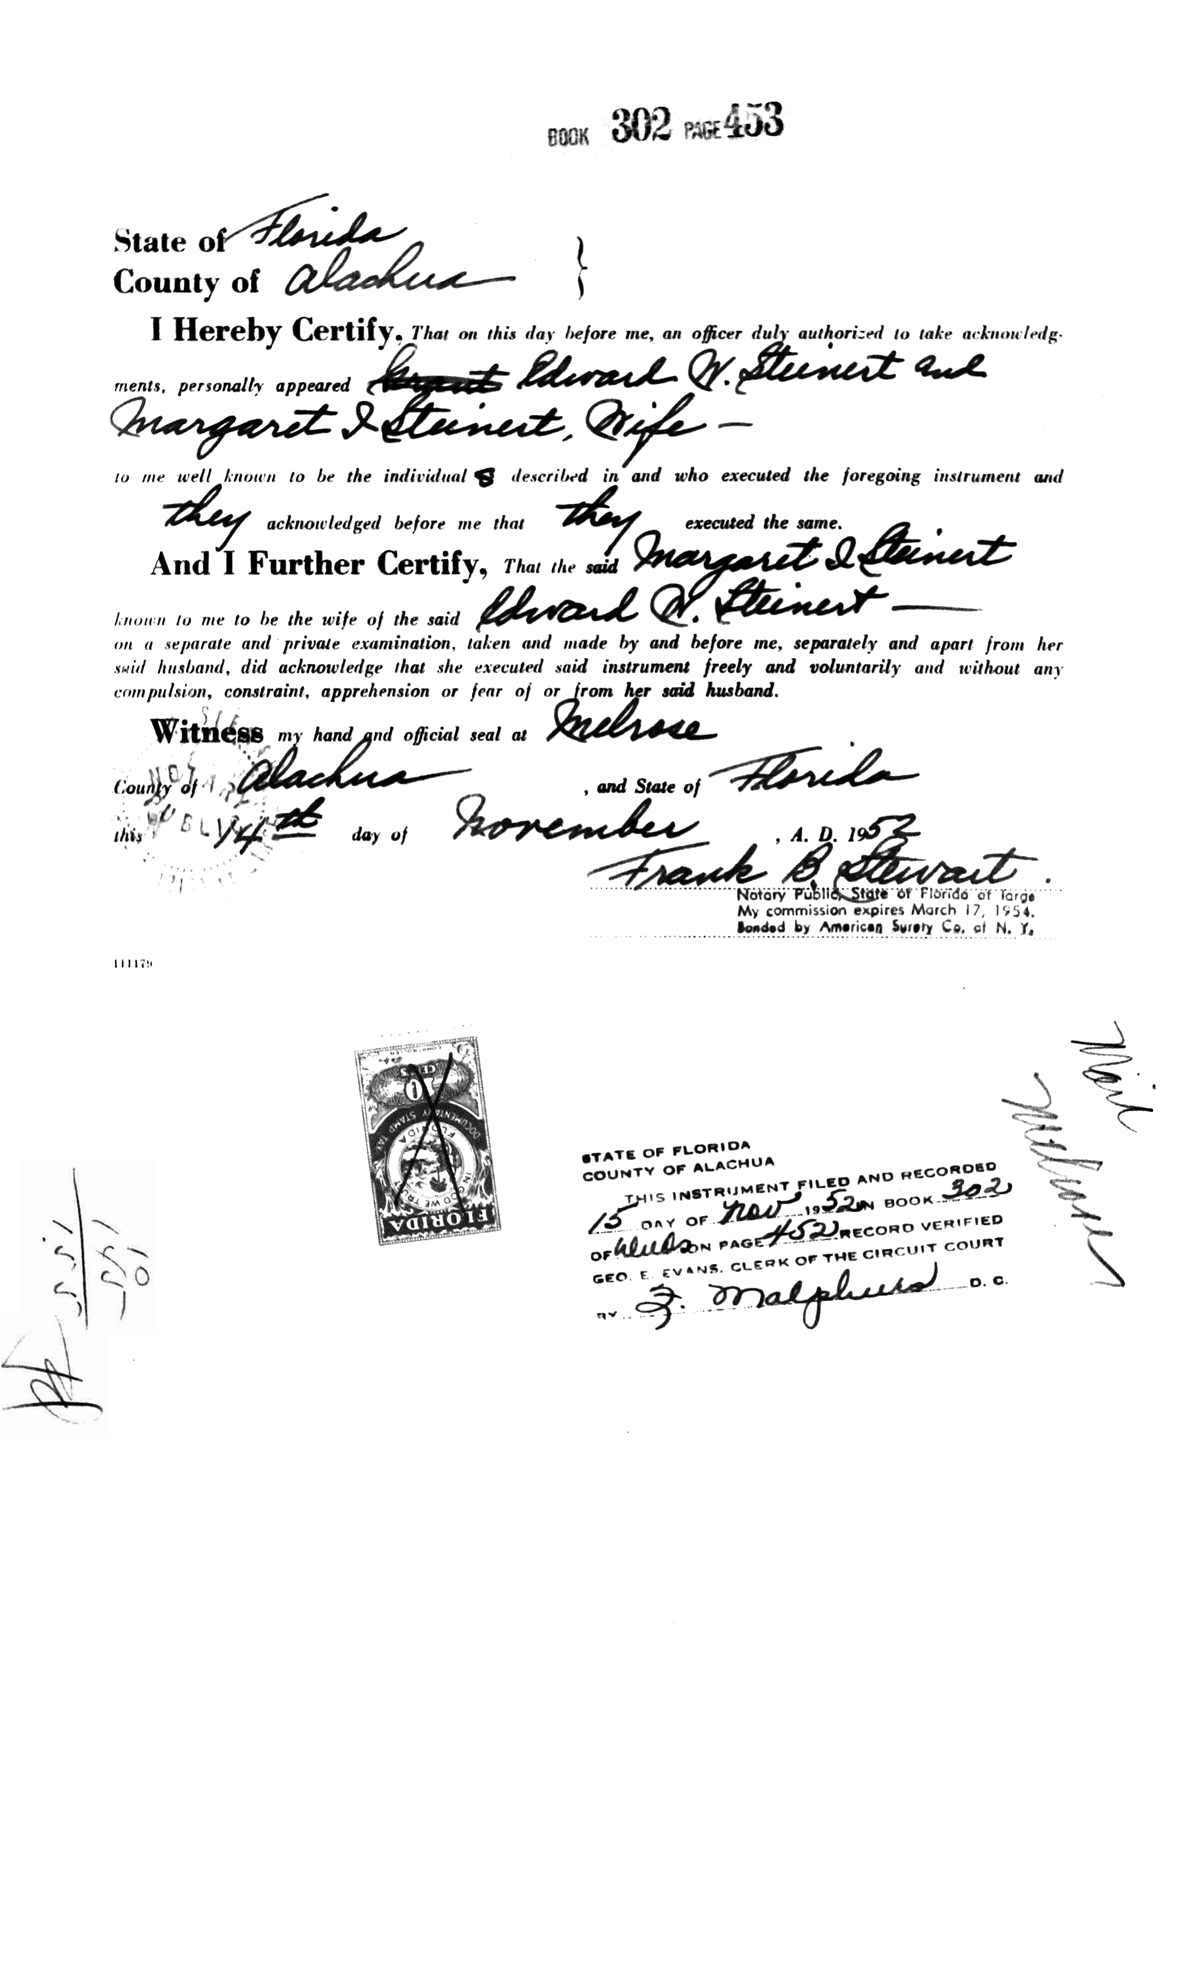 BOOK 302 PAGE 453
State of Florida
County of Alachua
I Hereby Certify, That on this day before me, an officer duly authorized to take acknowledg-
ments, personally appeared Edward W. Steinert and
Margaret I Steinert, Wife —
to me well known to be the individual s described in and who executed the foregoing instrument and
they acknowledged before me that they executed the same.
And I Further Certify, That the said Margaret I Steinert
known to me to be the wife of the said Edward W. Steinert —
on a separate and private examination, taken and made by and before me, separately and apart from her
said husband, did acknowledge that she executed said instrument freely and voluntarily and without any
compulsion, constraint, apprehension or fear of or from her said husband.
Witness my hand and official seal at Melrose
County of Alachua , and State of Florida
this 14th day of November , A. D. 1952
Frank B. Stewart.
Notary Public, State of Florida at large
My commission expires March 17, 1954.
Bonded by American Surety Co. of N. Y.
111179
10 CENTS
DOCUMENTARY STAMP TAX
FLORIDA
IN GOD WE TRUST
FLORIDA
Mail
Melrose
STATE OF FLORIDA
COUNTY OF ALACHUA
THIS INSTRUMENT FILED AND RECORDED
15 DAY OF Nov 1952 IN BOOK 302
OF Deeds ON PAGE 452 RECORD VERIFIED
GEO. E. EVANS, CLERK OF THE CIRCUIT COURT
BY F. Malphurs D. C.